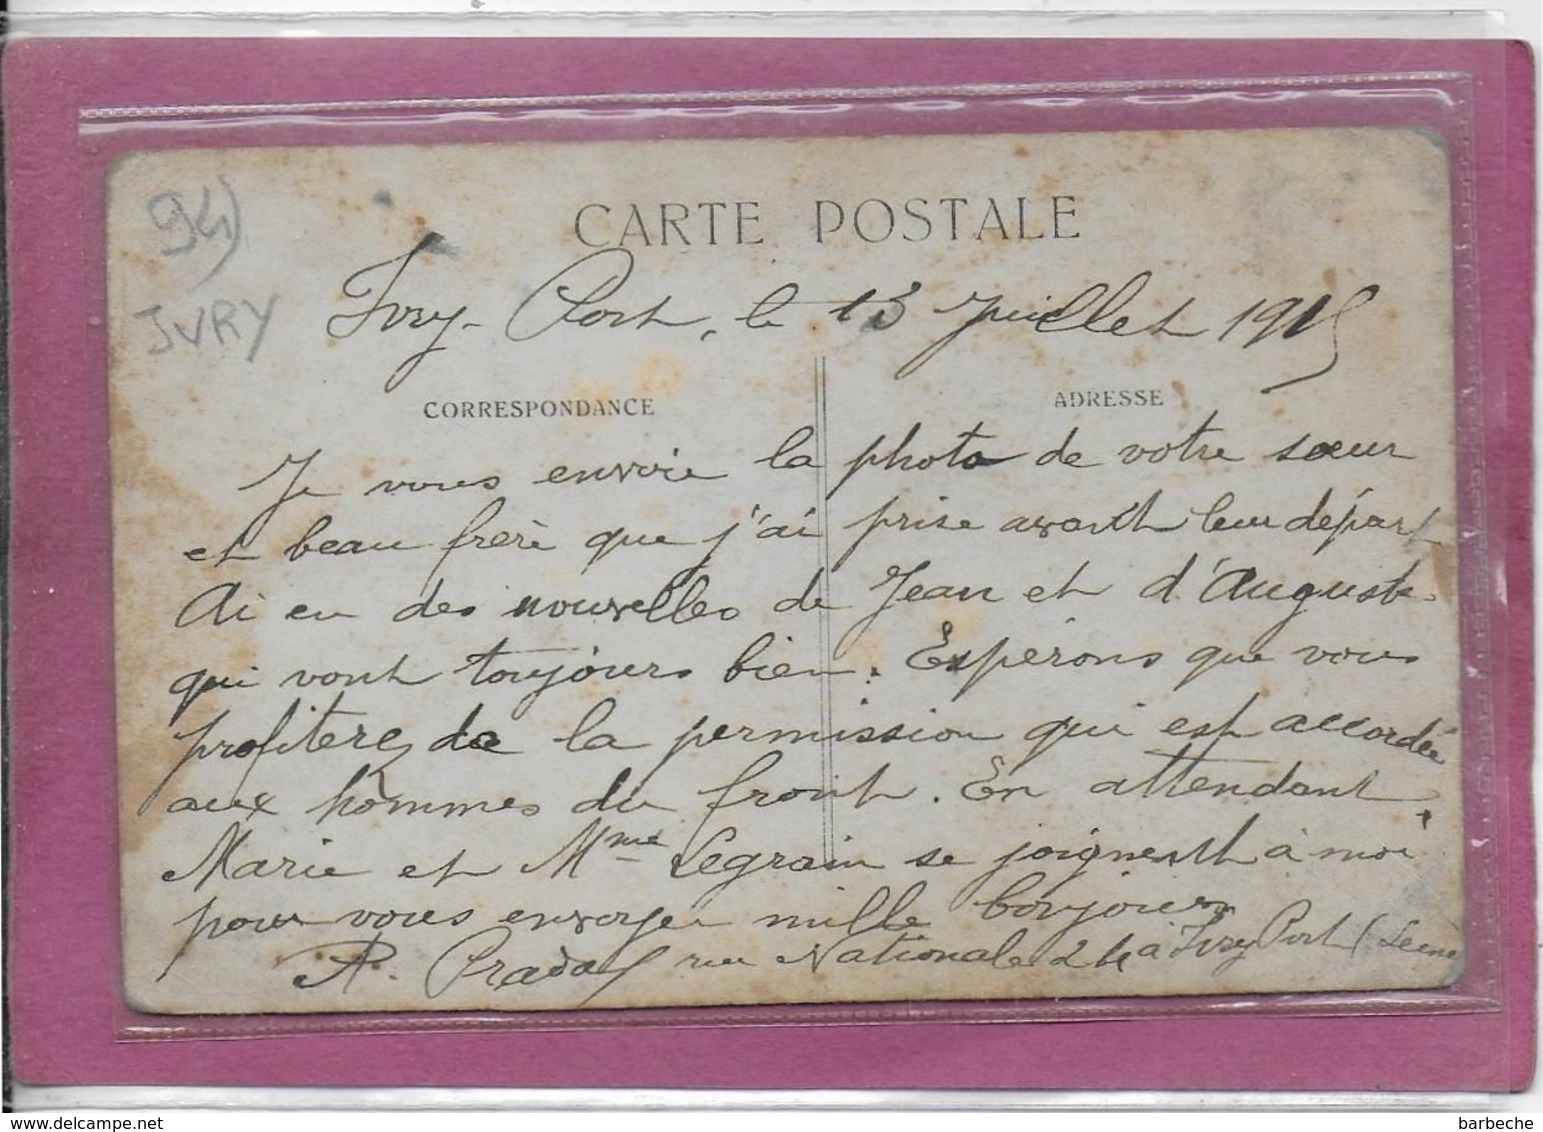 94)
IVRY
CARTE POSTALE
Ivry-Port, le 13 Juillet 1915
CORRESPONDANCE
ADRESSE
Je vous envoie la photo de votre sœur
et beau frère que j'ai prise avant leur départ
Ai eu des nouvelles de Jean et d'Auguste
qui vont toujours bien. Espérons que vous
profiterez de la permission qui est accordée
aux hommes du front. En attendant,
Marie et Mme Legrain se joignent à moi
pour vous envoyer mille bonjours
A. Pradal rue Nationale 24 à Ivry Port (Seine
delcampe.net
barbeche